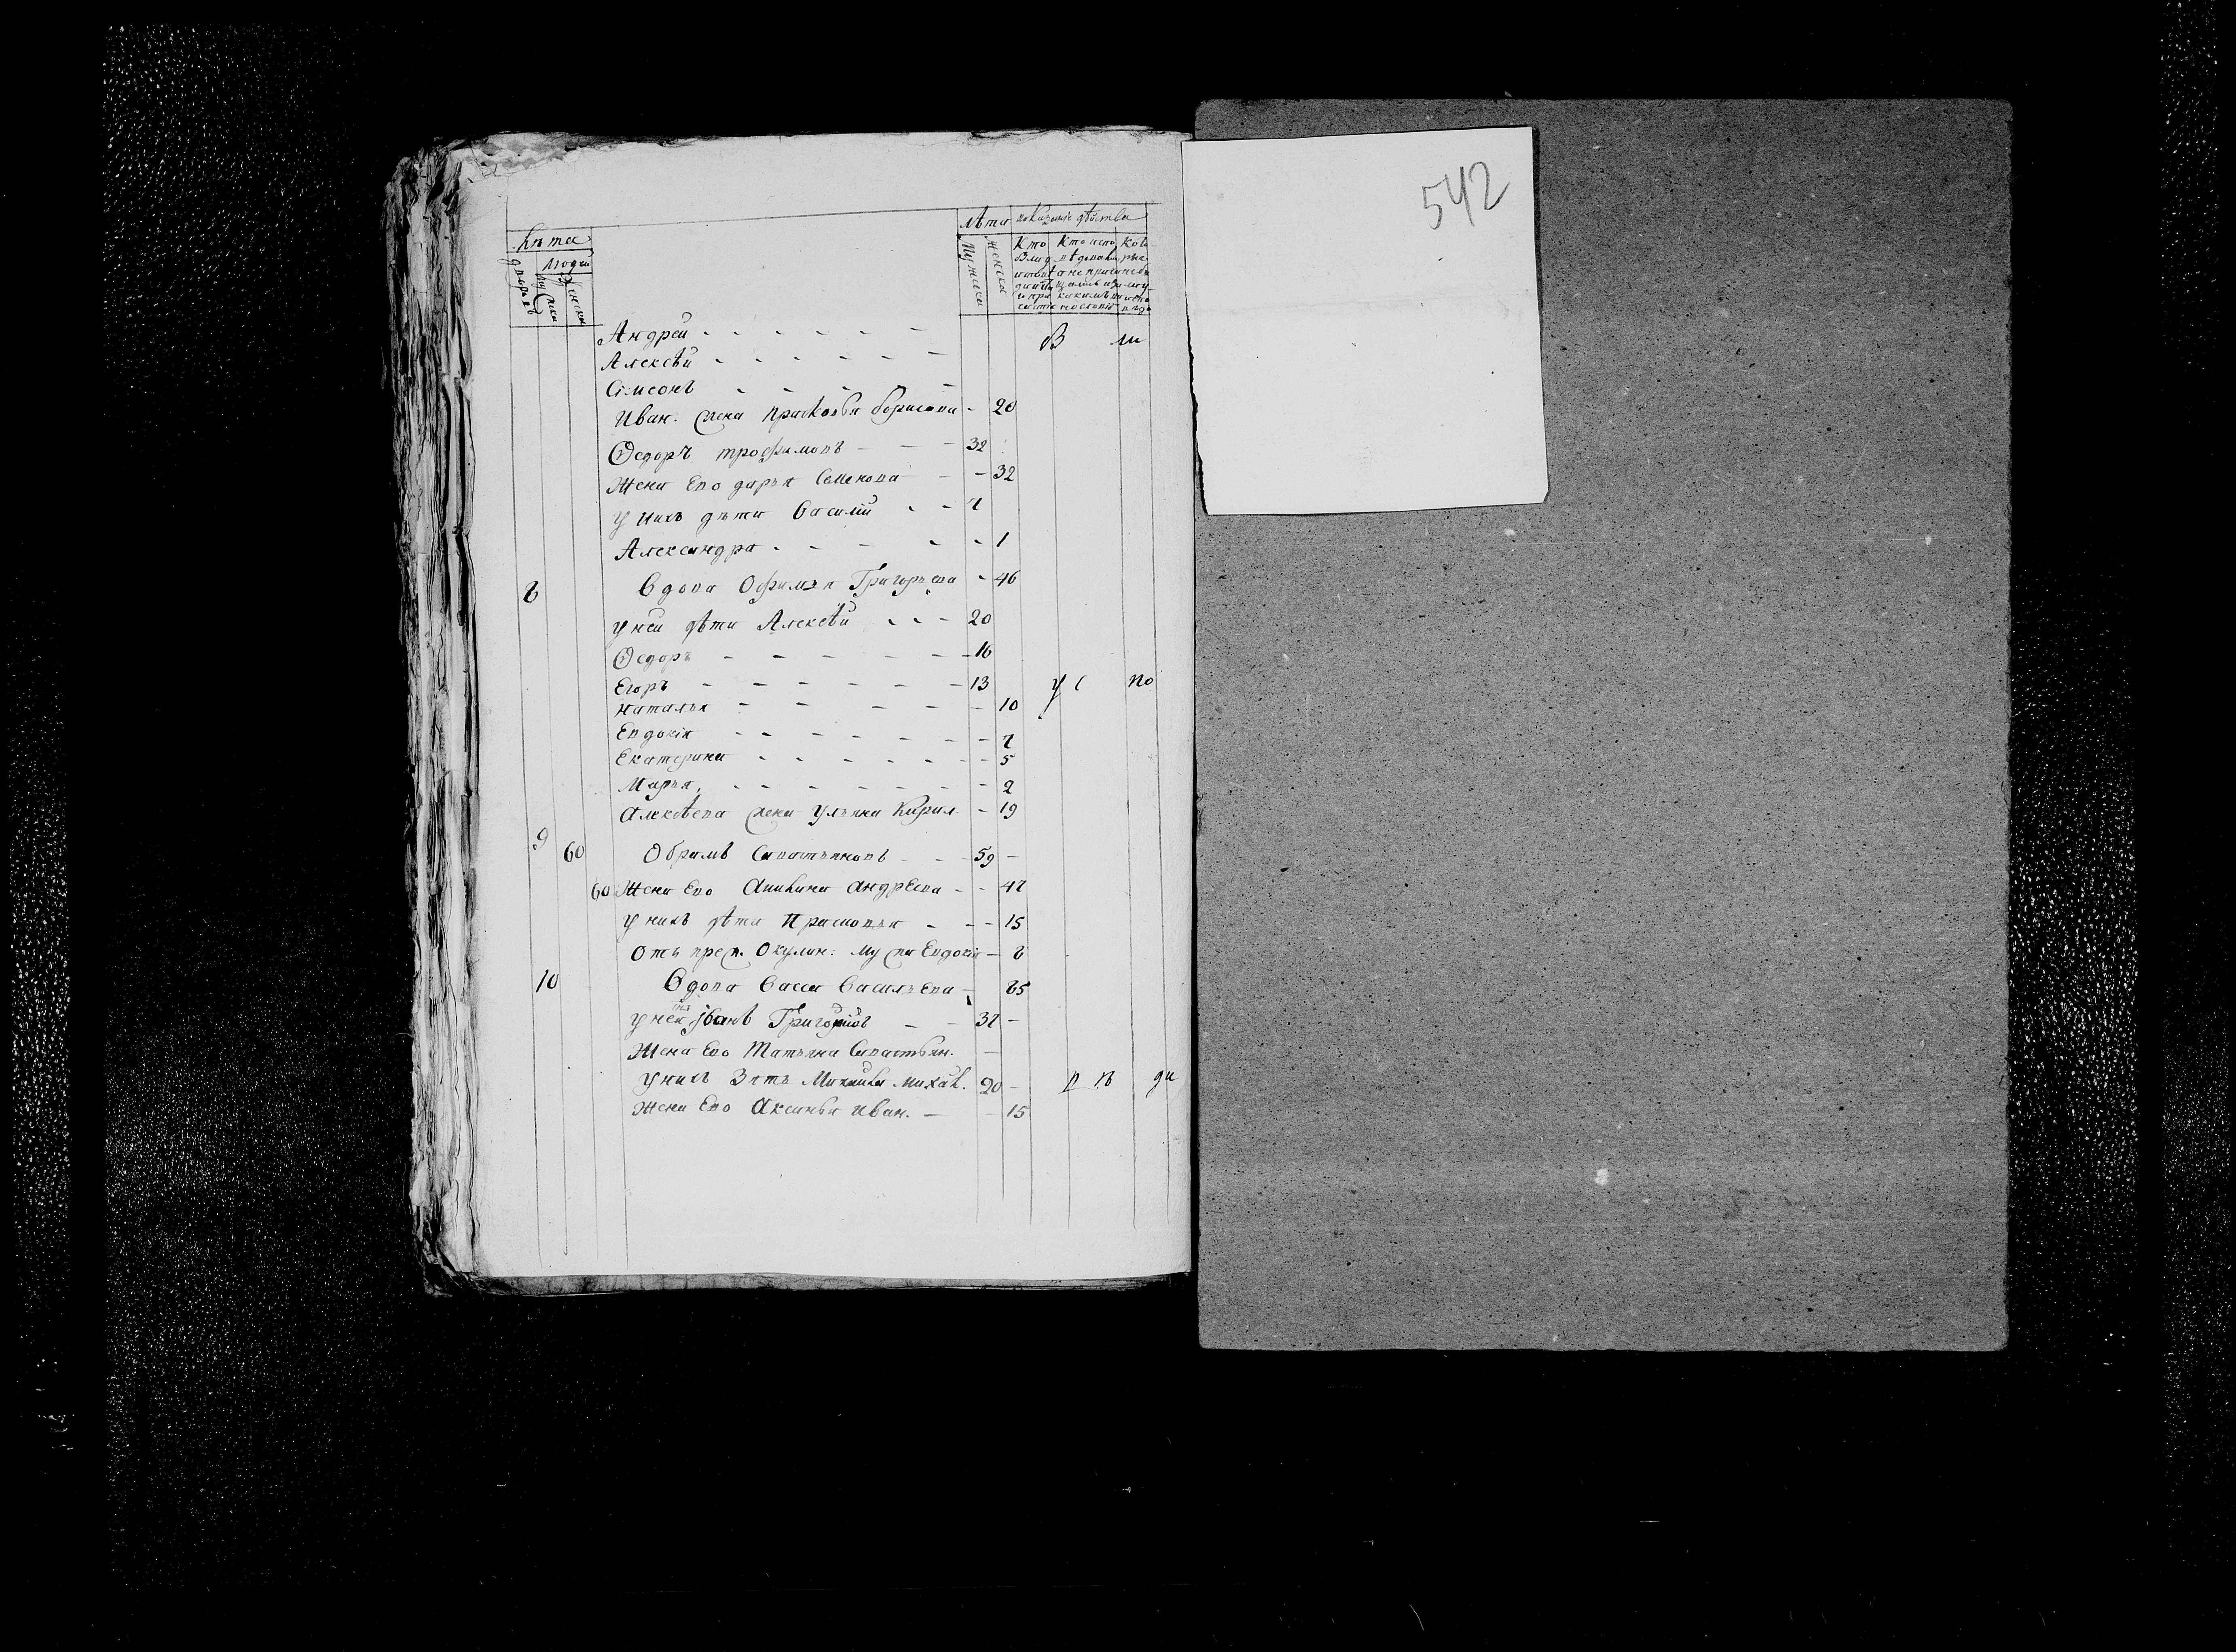 542
лѣта показанiе дѣйства
людей
дворовъ мужеска женска
мужеска женска
Кто Кто испо Кото
Андрей - - - - - - В ш
Алексѣй - - - - - -
Сiмеонъ - - - -
Иван. жена Прасковья борисова - 20
Ѳедоръ трофимовъ - - - 32
жена Ево дарья Семенова - - 32
у нихъ дѣти Василiй - - 7
Александра - - - - - 1
8 Вдова Офимья Григорьева - 46
у ней дѣти Алексѣй - - - 20
Ѳедоръ - - - - - - 16
Егоръ - - - - - - - 13 у с по
Наталья - - - - - 10
Евдокiя - - - - - - - 7
Екатерина - - - - - - - 5
Марья - - - - - - - 2
Алексѣева жена Ульяна Кирил. - 19
9 60 Обрамъ Савастьяновъ - - 59 -
60 Жена Ево Андреева - - 47
у нихъ дѣти Прасковья - - - 15
Отъ Окулин: Евдокiя - 8
10 Вдова Васса Васильева - 85
у нея сынъ Iванъ Григорiевъ - - 37 -
Жена Ево Татьяна Савастьян. -
у нихъ Зять Михайла михай. 20 - п въ ди
Жена Ево Аксинья иван. - - 15